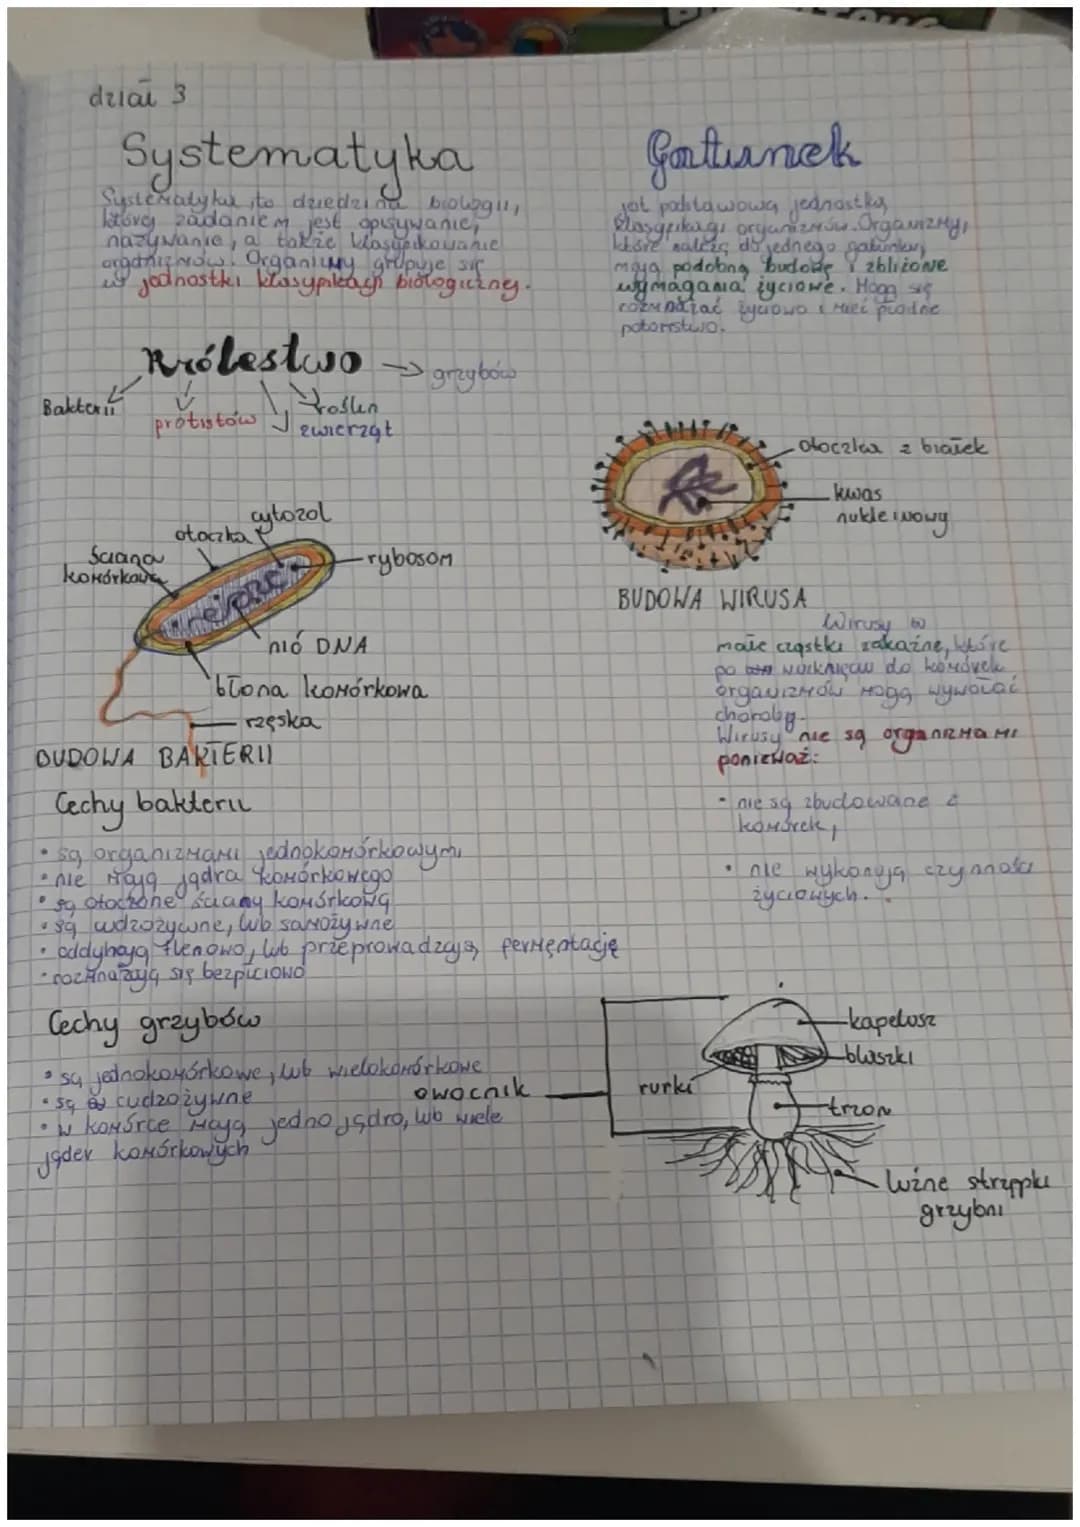 dział 3
Systematyka
Systematyka to dziedzina biologii,
której zadaniem jest opisywanie,
nazywanie, a także klasyfikowanie
organizmów. Organizmy grupuje się
w jednostki klasyfikacji biologicznej.
Gatunek
jest podstawową jednostką
klasyfikacji organizmów. Organizmy,
które należą do jednego gatunku,
mają podobną budowę i zbliżone
wymagania życiowe. Mogą się
rozmnażać płciowo i mieć płodne
potomstwo.
Królestwo → grzybów
Bakterii
protistów
roślin
zwierząt
otoczka z białek
kwas
nukleinowy
BUDOWA WIRUSA
cytozol
otoczka
ściana
komórkowa
rybosom
nić DNA
błona komórkowa
rzęska
BUDOWA BAKTERII
Wirusy to
małe cząstki zakaźne, które
po wniknięciu do komórek
organizmów mogą wywołać
choroby.
Wirusy nie są organizmami
ponieważ:
• nie są zbudowane z
komórek,
• nie wykonują czynności
życiowych.
Cechy bakterii
• są organizmami jednokomórkowymi
• nie mają jądra komórkowego
• są otoczone ścianą komórkową
• są cudzożywne, lub samożywne
• oddychają tlenowo, lub przeprowadzają fermentację
• rozmnażają się bezpłciowo
Cechy grzybów
• są jednokomórkowe, lub wielokomórkowe
• są cudzożywne
• w komórce mają jedno jądro, lub wiele
jąder komórkowych
owocnik
kapelusz
blaszki
rurki
trzon
luźne strzępki
grzybni